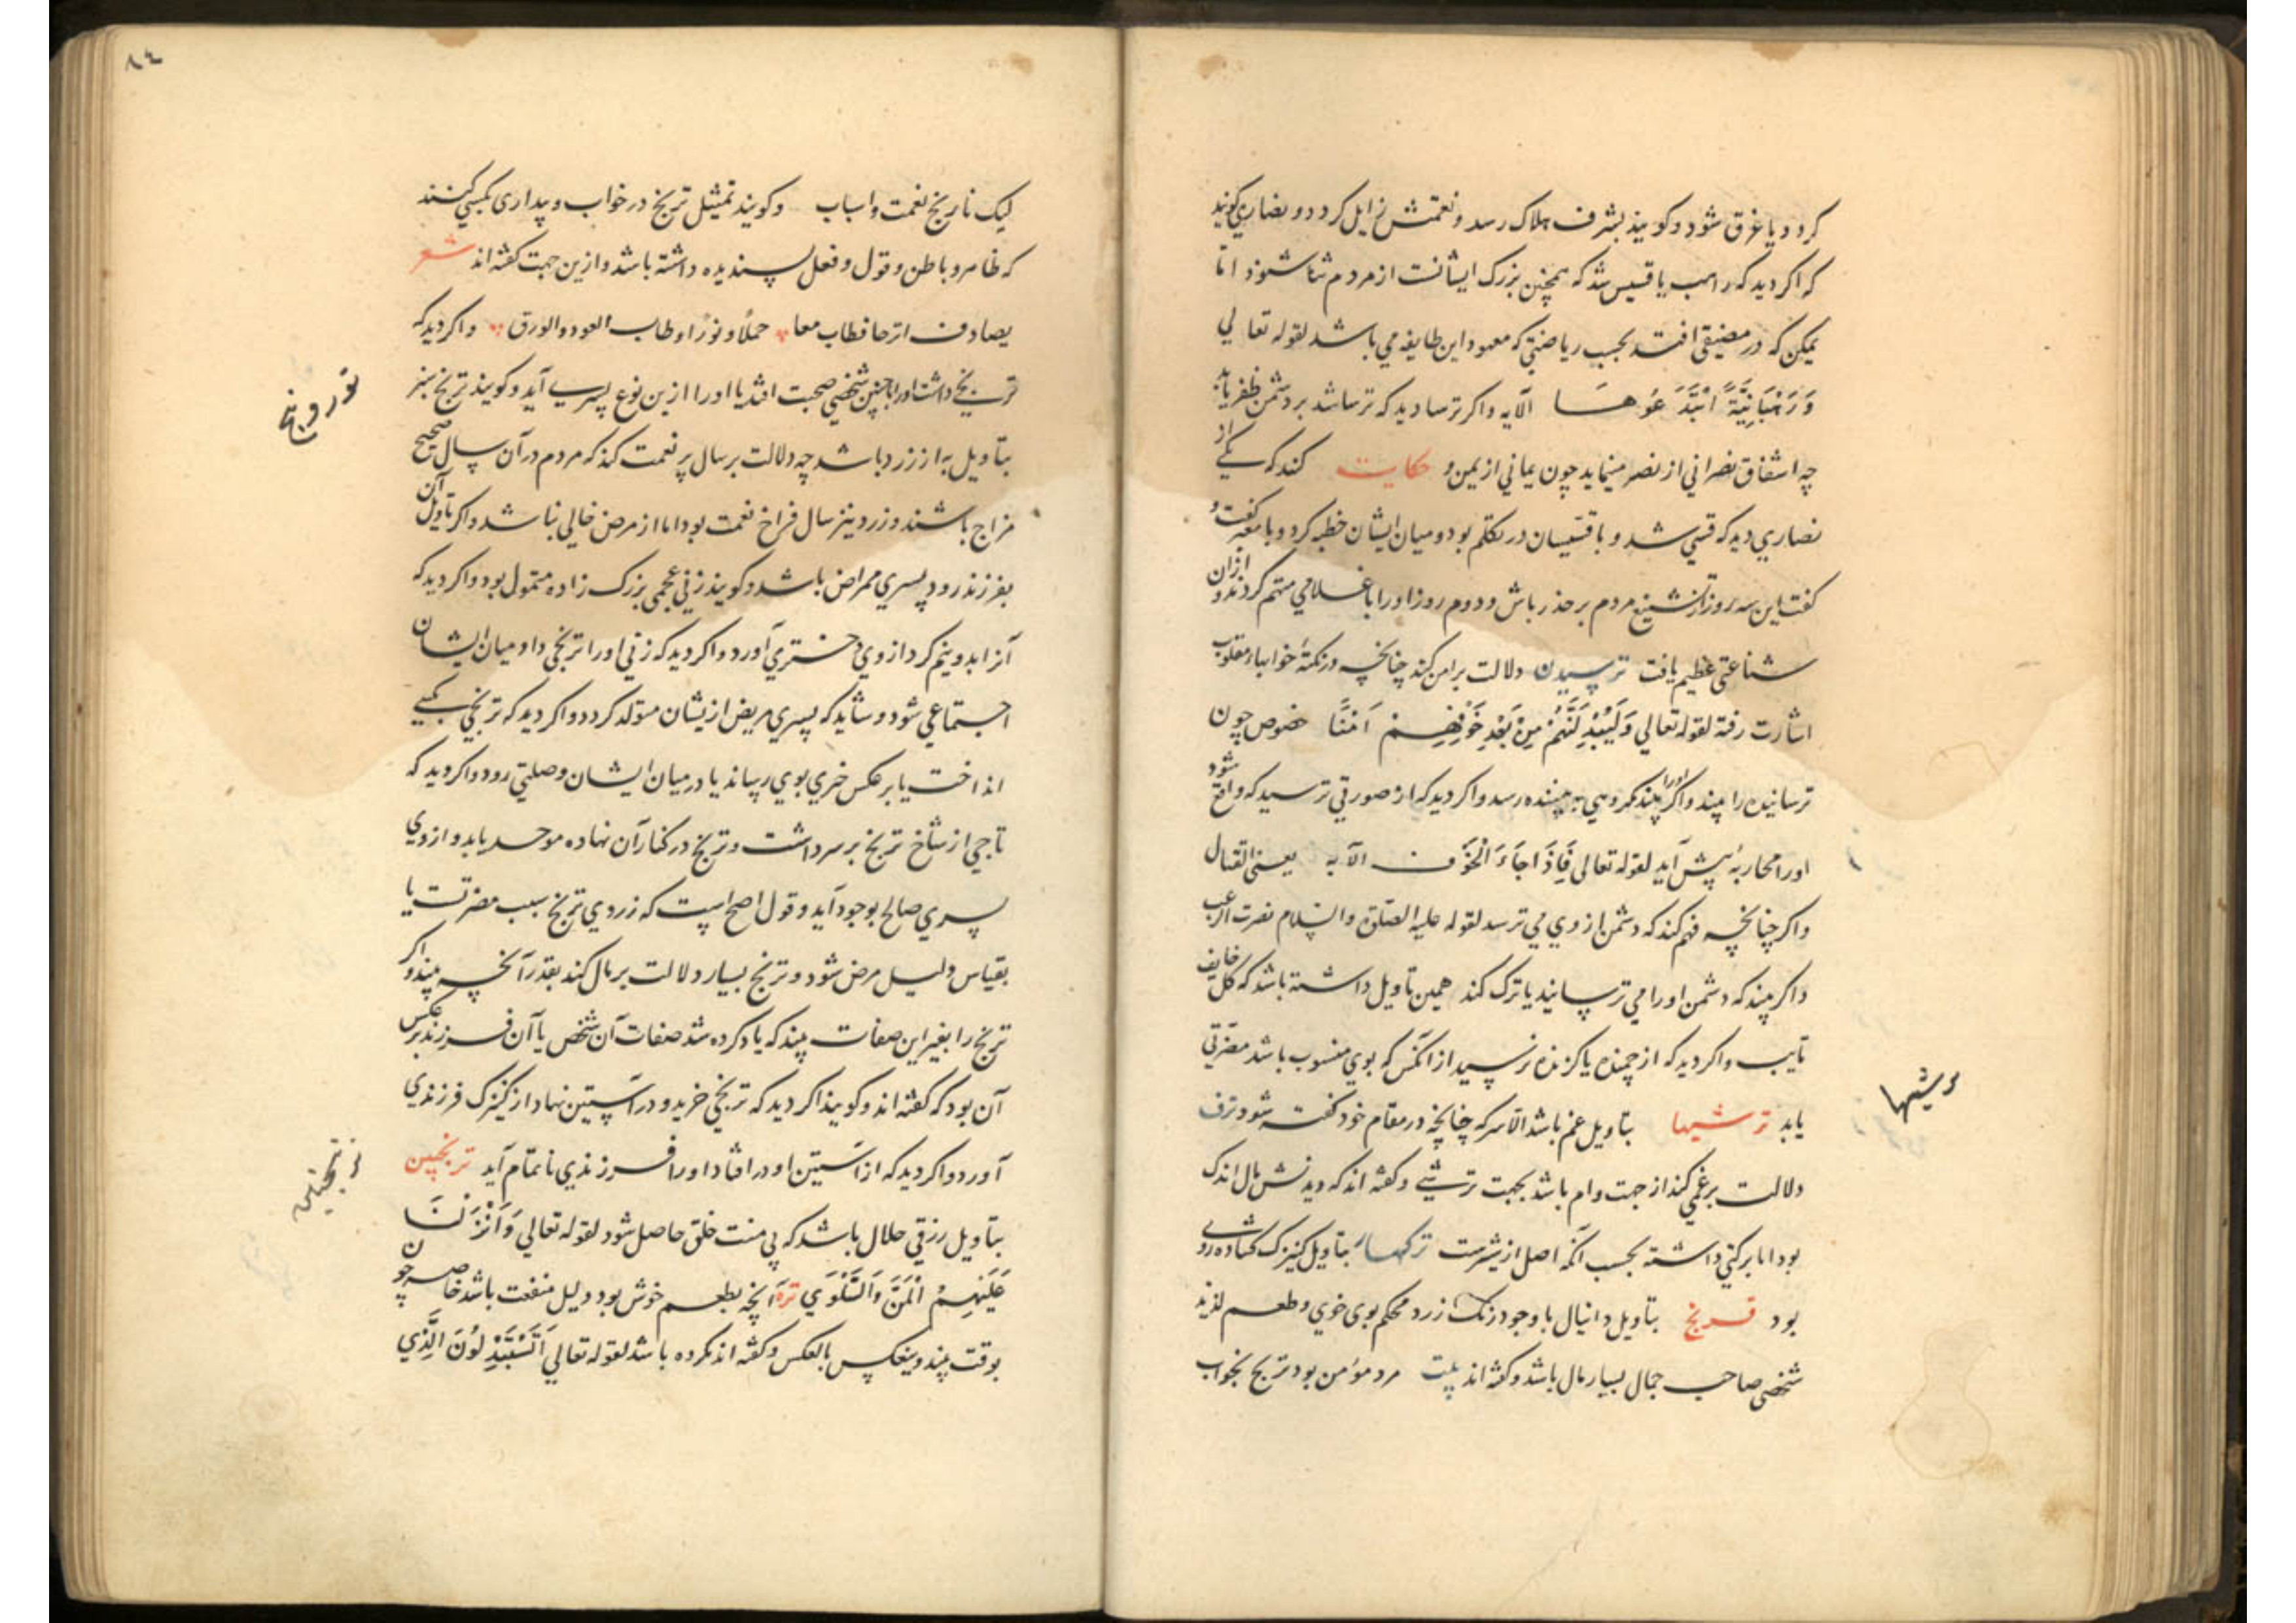 کردد یا غرق شود و کویند بشرف هلاک رسد و نعمتش زایل کردد و نصاری کویند
که اکر دید که راهب یا قسیس شد که همچنین بزرک ایشانست از مردم ثنا شنود اما
یمکن که در مضیقی افتد بحسب ریاضتی که معهود این طایفه می باشد لقوله تعالی
وَرَهْبَانِیَّةً ابْتَدَعُوهَا الآیه و اکر ترسا دید که ترسا شد بر دشمن ظفر یابد
چه اشتقاق نصرانی از نصر مینماید چون یمانی از یمن و حکایت کنند که یکی از
نصاری دید که قسی شد و با قسیسان در تکلم بود و میان ایشان خطبه کرد و با معبر کفت و
کفت این سه روز از تشنیع مردم بر حذر باش و دوم روز او را با غلامی متهم کردند و از آن
شناعتی عظیم یافت ترسیدن دلالت بر امن کند چنانچه در نکتهٔ خوابهاء مقلوب
اشارت رفته لقوله تعالی وَلَیُبَدِّلَنَّهُمْ مِنْ بَعْدِ خَوْفِهِمْ اَمْنًا خصوص چون
ترساننده را بیند و اکر او را بیند مکروهی به بیننده رسد و اکر دید که از صورتی ترسید که واقع شود
او را محاربهٔ پیش آید لقوله تعالی فَاِذَا جَاءَ الْخَوْف الآیه یعنی القتال
و اکر چنانچه فهم کند که دشمن از وی می ترسد لقوله علیه الصلوة والسلام نصرت الرعب
و اکر بیند که دشمن او را می ترسانند یا ترک کند همین تاویل داشته باشد که کل خایف
تایب و اکر دید که از چمنده یا کزنده ترسید از انکس که بوی منسوب باشد مضرتی
یابد ترشیها بتاویل غم باشد الا سرکه چنانچه در مقام خود کفته شود ترف
دلالت بر غمی کند از جهت وام باشد بجهت ترشی و کفته اند که دیدنش مال اندک
بود اما برکتی داشته بحسب انکه اصل از شیرست ترکها بتاویل کنیزک کشاده روی
بود ترنج بتاویل دانیال با وجود رنک زرد محکم بوی خوی و طعم لذیذ
شخصی صاحب جمال بسیار مال باشد و کفته اند بیت مرد مؤمن بود ترنج بخواب
ترشیها
۸٤
لیک نارنج نعمت و اسباب و کویند تمثیل ترنج در خواب و بیداری بکسی کنند
که ظاهر و باطن و قول و فعل پسندیده داشته باشد و ازین جهت کفته اند شعر
یصادف اترجا فطاب معا حملًا و نورًا و طاب العود والورق و اکر دید که
ترنجی داشت او را با چنین شخصی صحبت افتد یا او را ازین نوع پسری آید و کویند ترنج سبز
بتاویل به از زرد باشد چه دلالت بر سال پر نعمت کند که مردم در آن سال صحیح
مزاج باشند و زرد نیز سال فراخ نعمت بود اما از مرض خالی نباشد و اکر تاویل آن
بفرزند رود پسری ممراض باشد و کویند زنی عجمی بزرک زاده متمول بود و اکر دید که
آنرا بدو نیم کرد از وی دختری آورد و اکر دید که زنی او را ترنجی داد میان ایشان
اجتماعی شود و شاید که پسری مریض ازیشان متولد کردد و اکر دید که ترنجی بکسی
انداخت یا بر عکس خبری بوی رساند یا در میان ایشان وصلتی رود و اکر دید که
تاجی از شاخ ترنج بر سر داشت و ترنج در کنار آن نهاده موحد یابد و از وی
پسری صالح بوجود آید و قول اصح اینست که زردی ترنج سبب مضرتست یا
بقیاس دلیل مرض شود و ترنج بسیار دلالت بر مال کند بقدر آنچه بیند و اکر
ترنج را بغیر این صفات بیند که یاد کرده شد صفات آن شخص یا آن فرزند بر عکس
آن بود که کفته اند و کویند اکر دید که ترنجی خرید و در آستین نهاد از کنیزک فرزندی
آورد و اکر دید که از آستین او در افتاد او را فرزندی ناتمام آید ترنجبین
بتاویل رزقی حلال باشد که بی منت خلق حاصل شود لقوله تعالی وَاَنْزَلْنَا
عَلَیْهِمْ الْمَنَّ وَالسَّلْوَی تره آنچه بطعم خوش بود دلیل منفعت باشد خاصه چون
بوقت بیند و ینعکس بالعکس و کفته اند مکروه باشد لقوله تعالی اَتَسْتَبْدِلُونَ الَّذِی
ترنجبین